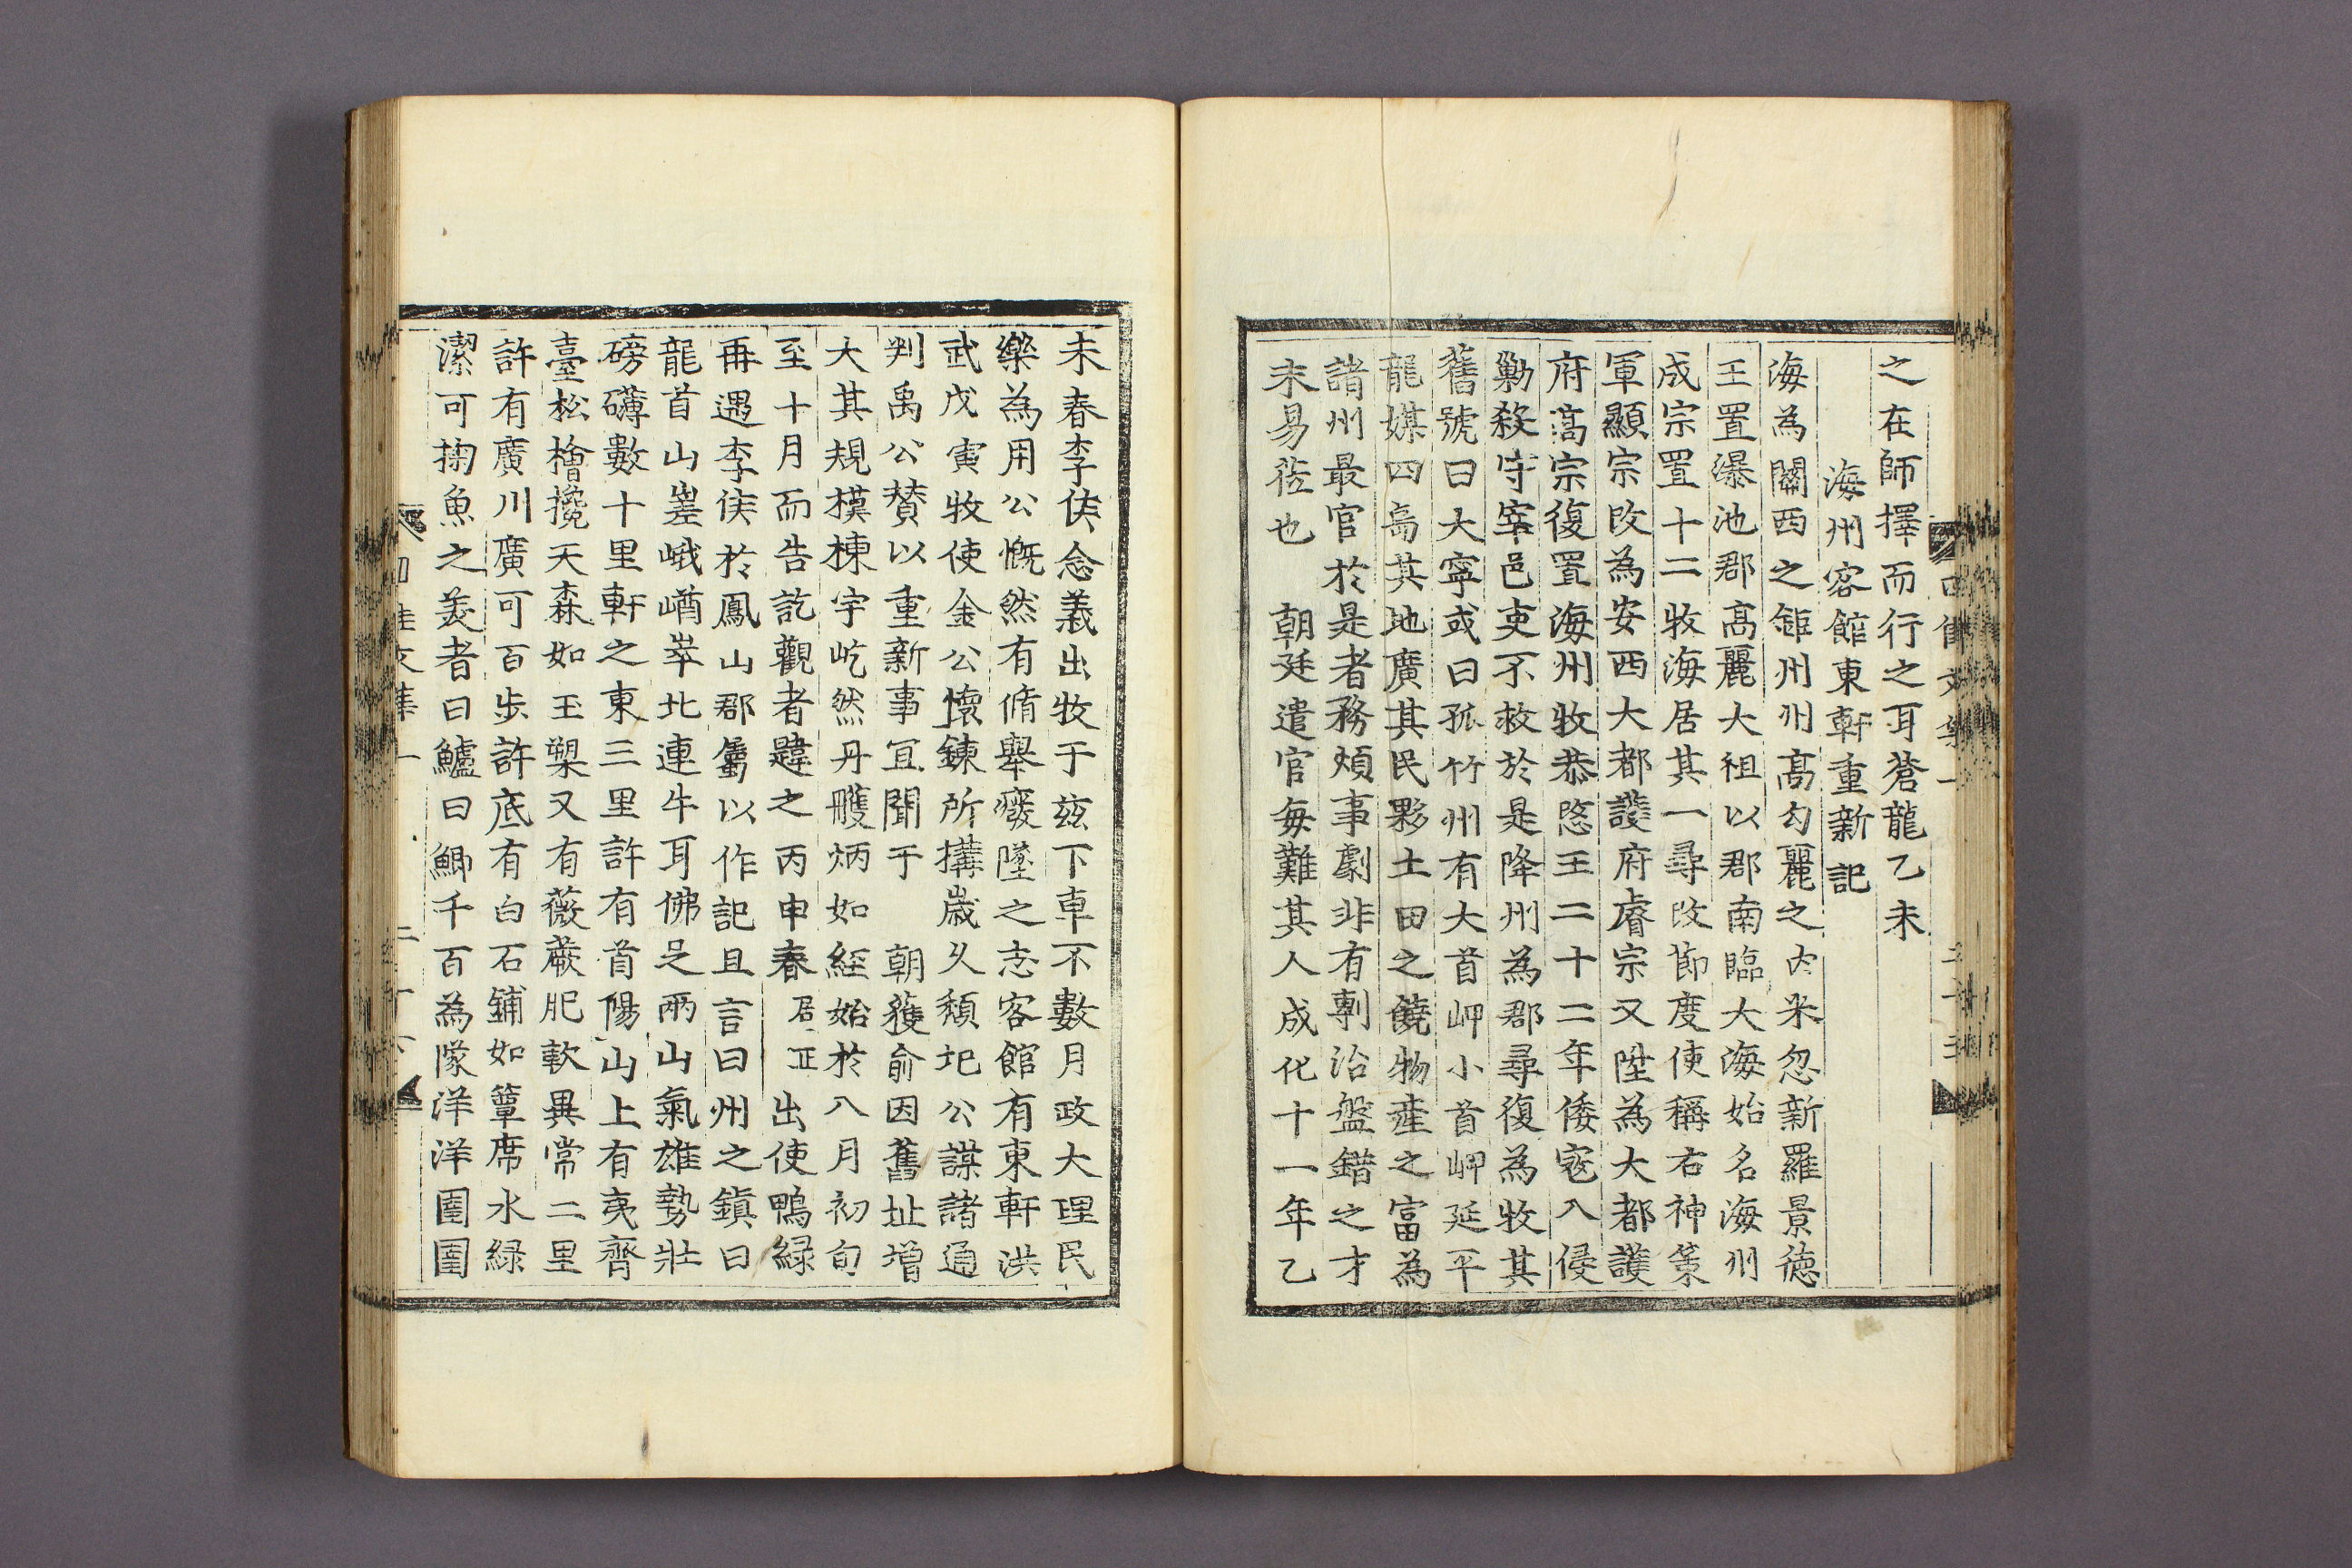 之在師擇而行之耳蒼龍乙未
海州客館東軒重新記
海為關西之鉅州州高勾麗之內米忽新羅景德
王置瀑池郡高麗大祖以郡南臨大海始名海州
成宗置十二牧海居其一尋改節度使稱右神策
軍顯宗改為安西大都護府睿宗又陞為大都護
府高宗復置海州牧恭愍王二十二年倭寇入侵
勦殺守宰邑吏不救於是降州為郡尋復為牧其
舊號曰大寧或曰孤竹州有大首岬小首岬延平
龍媒四島其地廣其民夥土田之饒物産之富為
諸州最官於是者務煩事劇非有剸治盤錯之才
未易莅也 朝廷遣官每難其人成化十一年乙
未春李侯念義出牧于玆下車不數月政大理民
樂為用公慨然有脩舉癈墜之志客館有東軒洪
武戊寅牧使金公懷鍊所搆歲久頹圯公謀諸通
判禹公賛以重新事冝聞于 朝獲俞因舊址增
大其規模棟宇屹然丹雘炳如経始於八月初旬
至十月而告訖觀者韙之丙申春居正出使鴨緑
再遇李侯於鳳山郡屬以作記且言曰州之鎮曰
龍首山嵳峨崷崒北連牛耳佛足兩山氣雄勢壯
磅礴數十里軒之東三里許有首陽山上有夷齊
臺松檜攙天森如玉槊又有薇蕨肥軟異常二里
許有廣川廣可百步許底有白石鋪如簟席水緑
潔可掬魚之羙者曰鱸曰鯽千百為隊洋洋圉圉